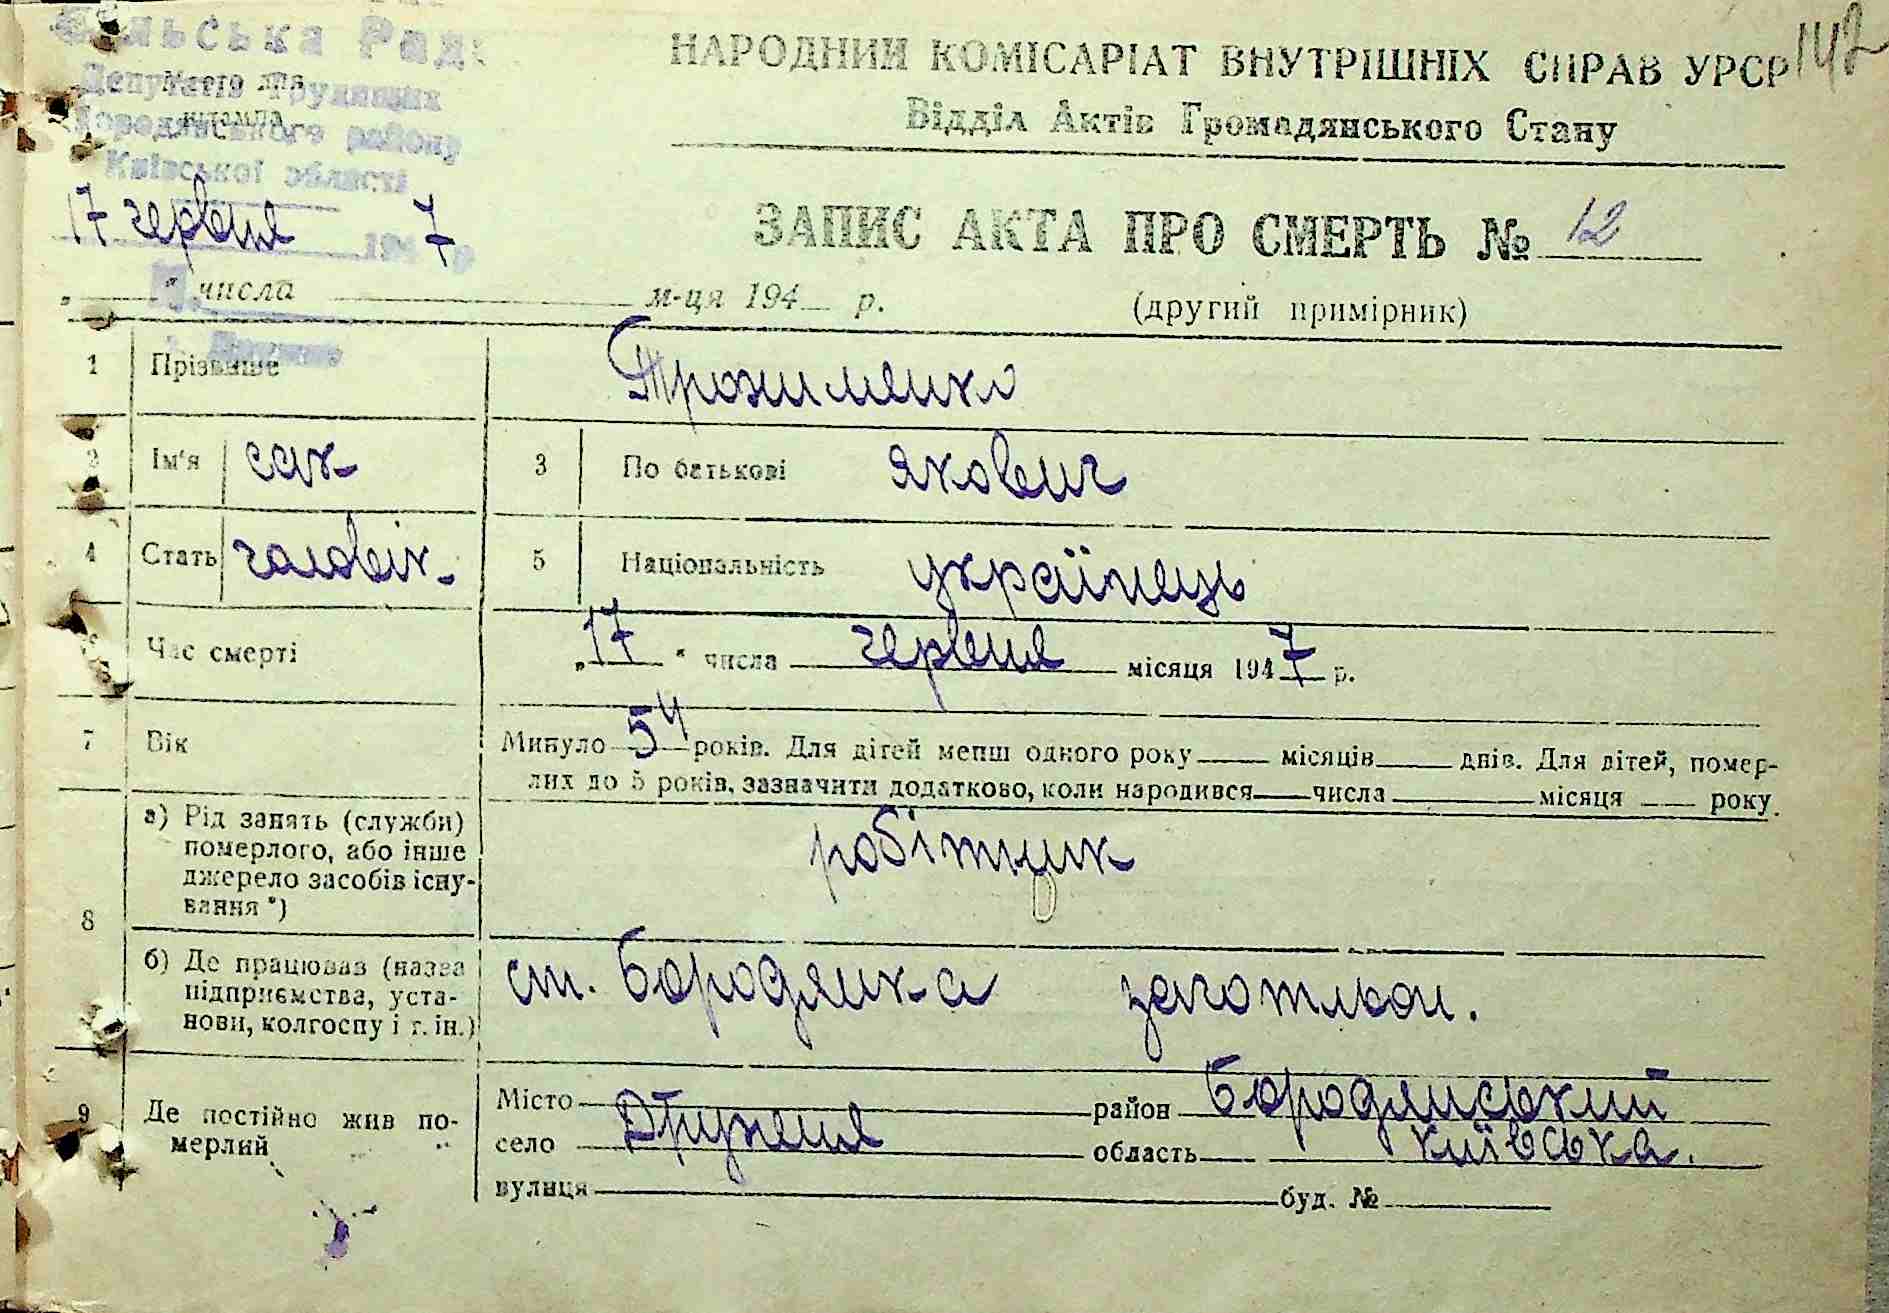 Сільська Рада
Депутатів Трудящих
Бородянського району
Київської області
Место для
штампа
142
НАРОДНИЙ КОМІСАРІАТ ВНУТРІШНІХ СПРАВ УРСР
Відділ Актів Громадянського Стану
17 червня 1947 р
ЗАПИС АКТА ПРО СМЕРТЬ № 12
„ “ числа м-ця 194 р.
(другий примірник)
1 Прізвише Трохименко
2 Ім'я сак 3 По батькові якович
4 Стать чоловік 5 Національність українець
Час смерті „17“ числа червня місяця 1947 р.
7 Вік Минуло 54 років. Для дітей менш одного року місяців днів. Для дітей, помер-
лих до 5 років, зазначити додатково, коли народився числа місяця року.
8 а) Рід занять (служби)
померлого, або інше
джерело засобів існу-
вання *)
робітник
б) Де працював (назва
підприємства, уста-
нови, колгоспу і т. ін.)
ст. Бородянка
9 Де постійно жив по-
мерлий
Місто район Бородянський
село Дружня область київська.
вулиця буд. №